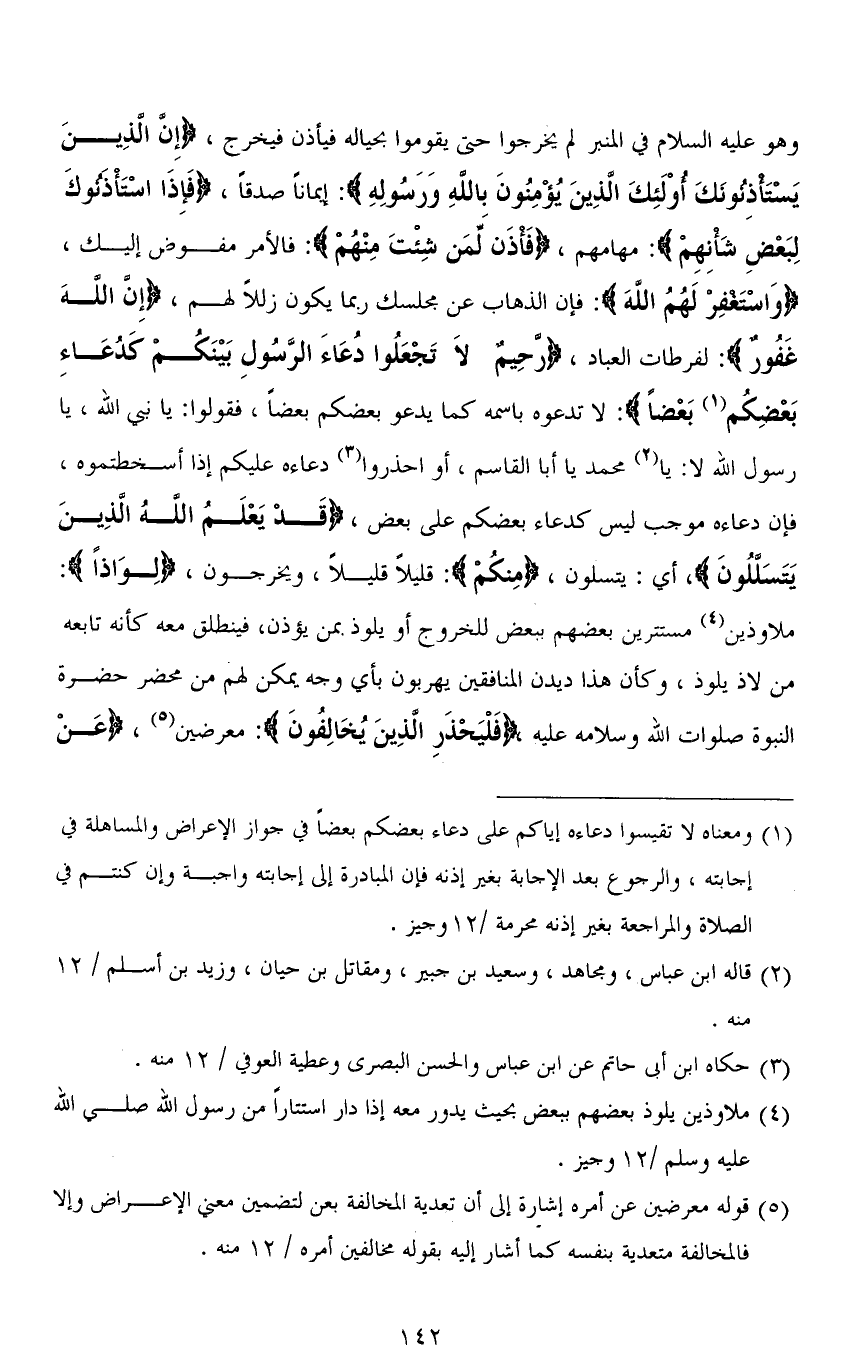 وهو عليه السلام في المنبر لم يخرجوا حتى يقوموا بحياله فيأذن فيخرج ، ﴿إِنَّ الَّذِينَ
يَسْتَأْذِنُونَكَ أُوْلَئِكَ الَّذِينَ يُؤْمِنُونَ بِاللَّهِ وَرَسُولِهِ﴾: إيماناً صدقاً ، ﴿فَإِذَا اسْتَأْذَنُوكَ
لِبَعْضِ شَأْنِهِمْ﴾: مهامهم ، ﴿فَأْذَن لِّمَن شِئْتَ مِنْهُمْ﴾: فالأمر مفوض إليك ،
﴿وَاسْتَغْفِرْ لَهُمُ اللَّهَ﴾: فإن الذهاب عن مجلسك ربما يكون زللاً لهم ، ﴿إِنَّ اللَّهَ
غَفُورٌ﴾: لفرطات العباد ، ﴿رَّحِيمٌ لاَ تَجْعَلُوا دُعَاءَ الرَّسُولِ بَيْنَكُمْ كَدُعَاءِ
بَعْضِكُم(١) بَعْضاً﴾: لا تدعوه باسمه كما يدعو بعضكم بعضاً ، فقولوا: يا نبي الله ، يا
رسول الله لا: يا(٢) محمد يا أبا القاسم ، أو احذروا(٣) دعاءه عليكم إذا أسخطتموه ،
فإن دعاءه موجب ليس كدعاء بعضكم على بعض ، ﴿قَدْ يَعْلَمُ اللَّهُ الَّذِينَ
يَتَسَلَّلُونَ﴾، أي : يتسلون ، ﴿مِنكُمْ﴾: قليلاً قليلاً ، ويخرجون ، ﴿لِوَاذاً﴾:
ملاوذين(٤) مستترين بعضهم ببعض للخروج أو يلوذ بمن يؤذن، فينطلق معه كأنه تابعه
من لاذ يلوذ ، وكأن هذا ديدن المنافقين يهربون بأي وجه يمكن لهم من محضر حضرة
النبوة صلوات الله وسلامه عليه ،﴿فَلْيَحْذَرِ الَّذِينَ يُخَالِفُونَ﴾: معرضين(٥) ، ﴿عَنْ
(١) ومعناه لا تقيسوا دعاءه إياكم على دعاء بعضكم بعضاً في جواز الإعراض والمساهلة في
إجابته ، والرجوع بعد الإجابة بغير إذنه فإن المبادرة إلى إجابته واجبة وإن كنتم في
الصلاة والمراجعة بغير إذنه محرمة /١٢ وجيز .
(٢) قاله ابن عباس ، ومجاهد ، وسعيد بن جبير ، ومقاتل بن حيان ، وزيد بن أسلم / ١٢
منه .
(٣) حكاه ابن أبى حاتم عن ابن عباس والحسن البصرى وعطية العوفي / ١٢ منه .
(٤) ملاوذين يلوذ بعضهم ببعض بحيث يدور معه إذا دار استتاراً من رسول الله صلي الله
عليه وسلم /١٢ وجيز .
(٥) قوله معرضين عن أمره إشارة إلى أن تعدية المخالفة بعن لتضمين معني الإعراض وإلا
فالمخالفة متعدية بنفسه كما أشار إليه بقوله مخالفين أمره / ١٢ منه .
١٤٢